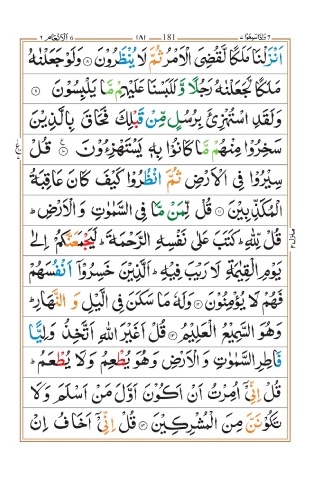 الانعام ٦ ١٨١ 181 واذا سمعوا ٧
اَنْزَلْنَا مَلَكًا لَّقُضِيَ الْاَمْرُ ثُمَّ لَا يُنْظَرُوْنَ ۝٨ وَلَوْ جَعَلْنٰهُ
مَلَكًا لَّجَعَلْنٰهُ رَجُلًا وَّ لَلَبَسْنَا عَلَيْهِمْ مَّا يَلْبِسُوْنَ ۝٩
وَلَقَدِ اسْتُهْزِئَ بِرُسُلٍ مِّنْ قَبْلِكَ فَحَاقَ بِالَّذِيْنَ
سَخِرُوْا مِنْهُمْ مَّا كَانُوْا بِهٖ يَسْتَهْزِءُوْنَ ۝١٠ قُلْ
سِيْرُوْا فِى الْاَرْضِ ثُمَّ انْظُرُوْا كَيْفَ كَانَ عَاقِبَةُ
الْمُكَذِّبِيْنَ ۝١١ قُلْ لِّمَنْ مَّا فِى السَّمٰوٰتِ وَ الْاَرْضِ ؕ
قُلْ لِّلّٰهِ ؕ كَتَبَ عَلٰى نَفْسِهِ الرَّحْمَةَ ؕ لَيَجْمَعَنَّكُمْ اِلٰى
يَوْمِ الْقِيٰمَةِ لَا رَيْبَ فِيْهِ ؕ اَلَّذِيْنَ خَسِرُوْۤا اَنْفُسَهُمْ
فَهُمْ لَا يُؤْمِنُوْنَ ۝١٢ وَلَهٗ مَا سَكَنَ فِى الَّيْلِ وَ النَّهَارِ ؕ
وَهُوَ السَّمِيْعُ الْعَلِيْمُ ۝١٣ قُلْ اَغَيْرَ اللّٰهِ اَتَّخِذُ وَلِيًّا
فَاطِرِ السَّمٰوٰتِ وَ الْاَرْضِ وَهُوَ يُطْعِمُ وَلَا يُطْعَمُ ؕ
قُلْ اِنِّىْۤ اُمِرْتُ اَنْ اَكُوْنَ اَوَّلَ مَنْ اَسْلَمَ وَلَا
تَكُوْنَنَّ مِنَ الْمُشْرِكِيْنَ ۝١٤ قُلْ اِنِّىْۤ اَخَافُ اِنْ